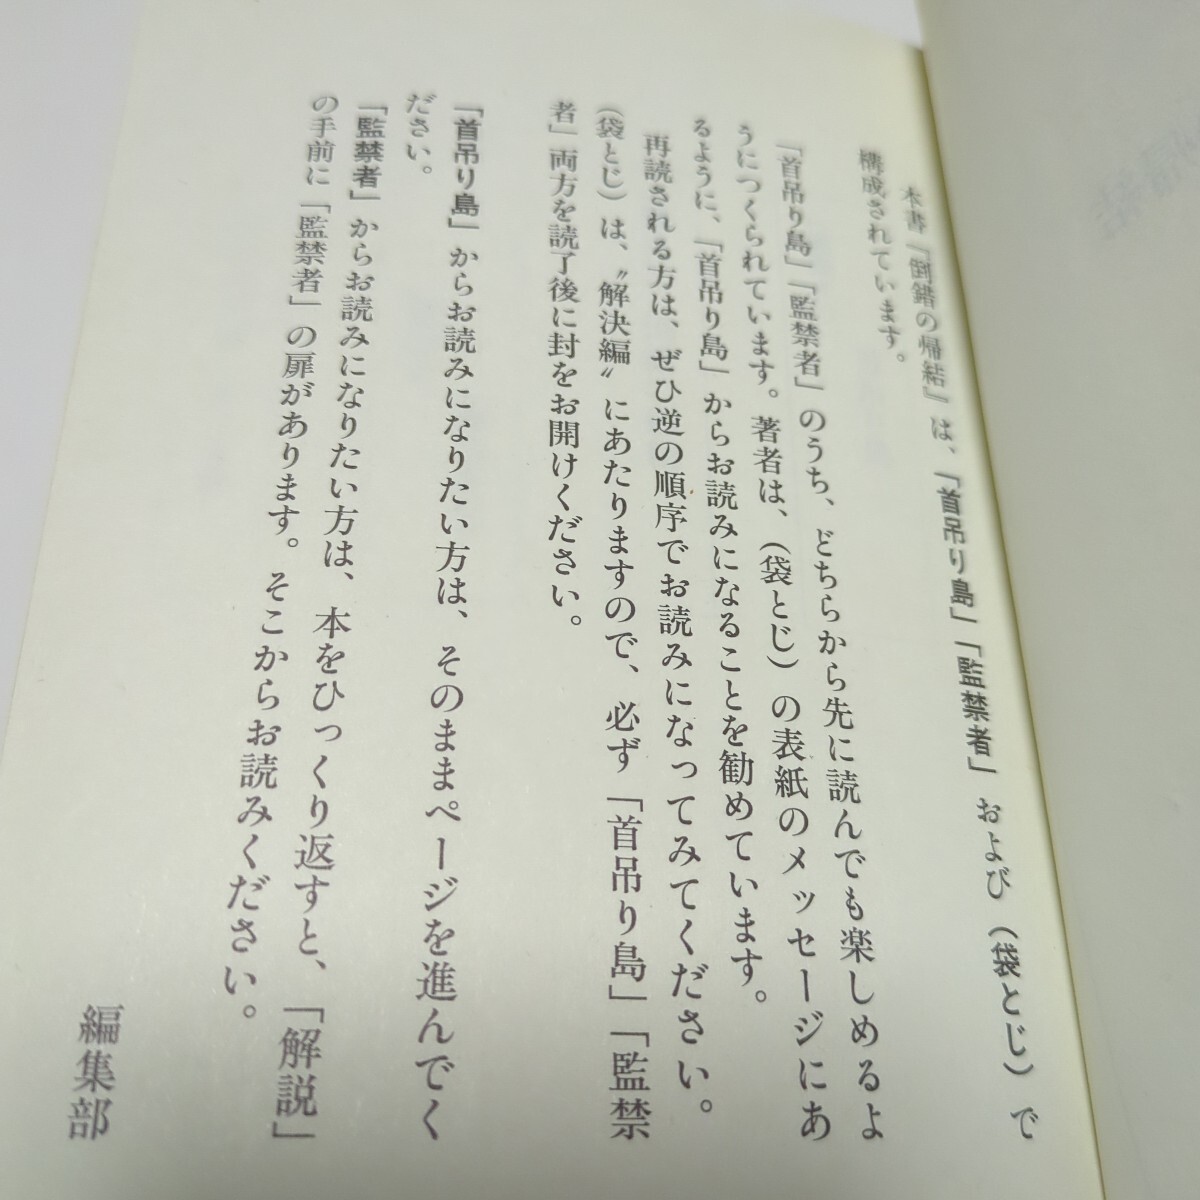 本書『倒錯の帰結』は、「首吊り島」「監禁者」および（袋とじ）で
構成されています。
「首吊り島」「監禁者」のうち、どちらから先に読んでも楽しめるよ
うにつくられています。著者は、（袋とじ）の表紙のメッセージにあ
るように、「首吊り島」からお読みになることを勧めています。
再読される方は、ぜひ逆の順序でお読みになってみてください。
（袋とじ）は、〝解決編〟にあたりますので、必ず「首吊り島」「監禁
者」両方を読了後に封をお開けください。
「首吊り島」からお読みになりたい方は、そのままページを進んでく
ださい。
「監禁者」からお読みになりたい方は、本をひっくり返すと、「解説」
の手前に「監禁者」の扉があります。そこからお読みください。
編集部